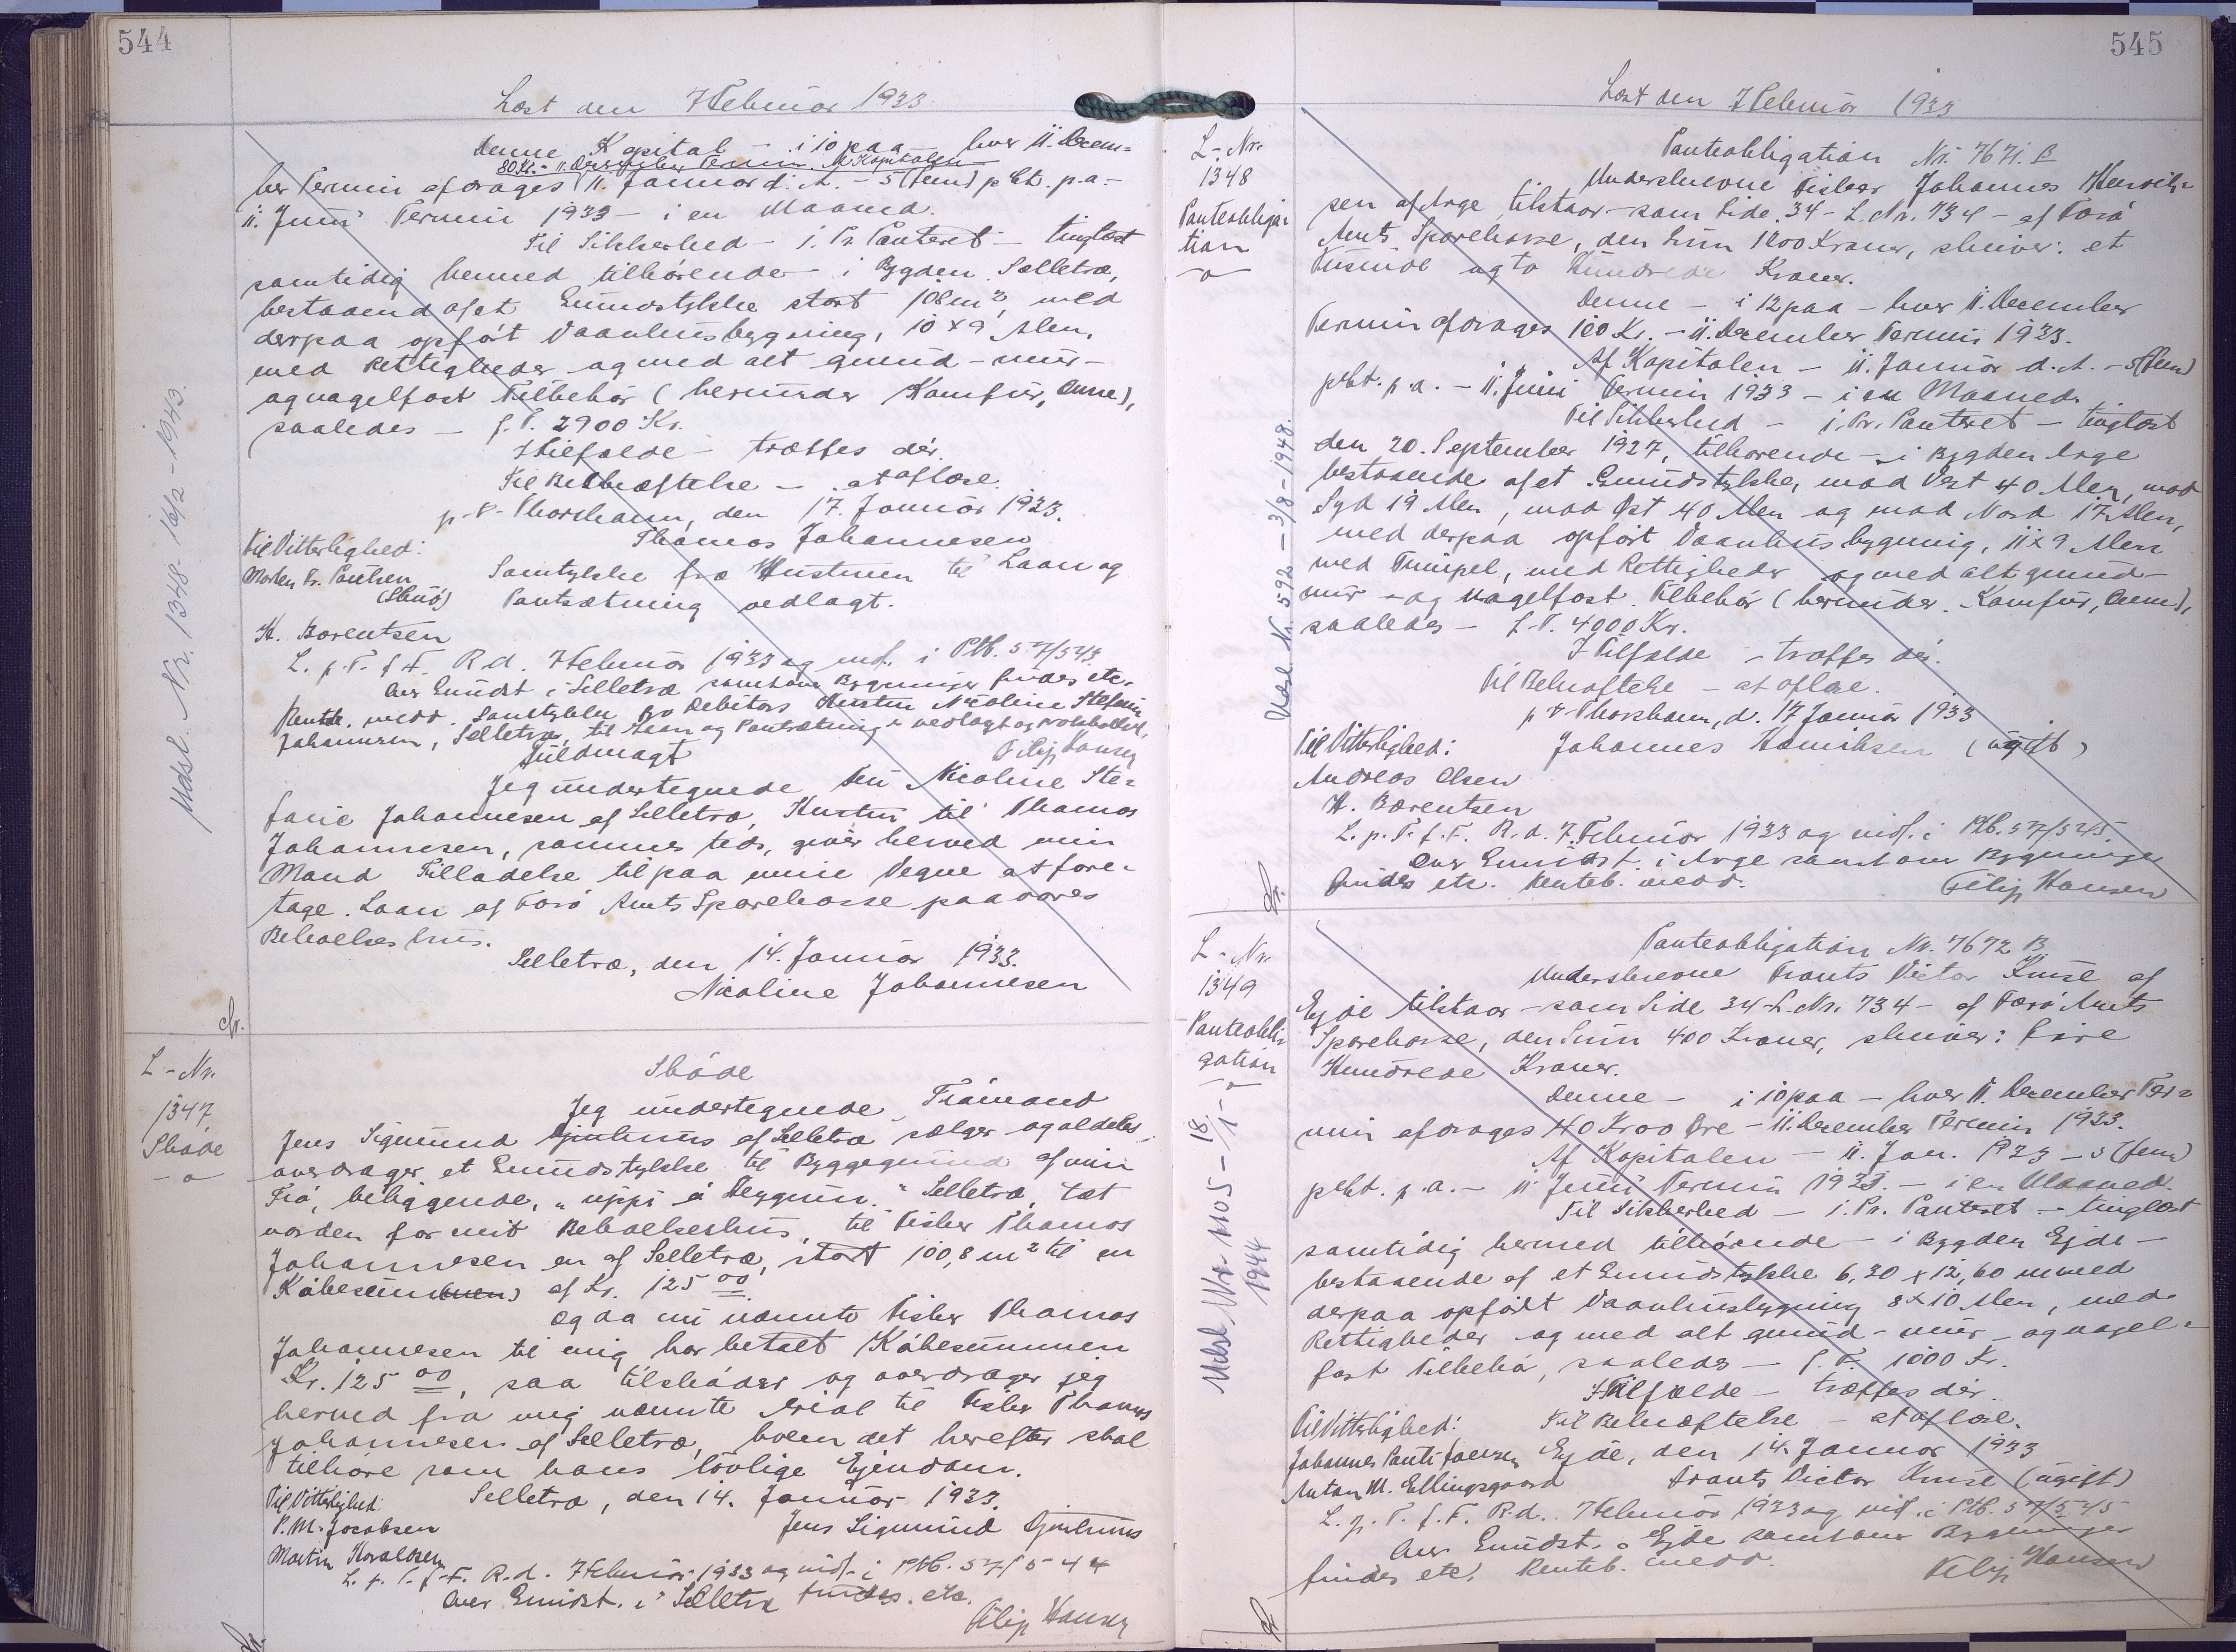 544
Læst den 7 Februar 1933.
Denne Kapital – i 10 paa – hver 11. Decem=
80 Kr. – 11. December Termin. Af Kapitalen
ber Termin afdrages 11. Januar d. A. – 5 (fem) pCt. p.a. –
11. Juni Termin 1933 – i en Maaned.
Til Sikkerhed – 1. Pr. Panteret – tinglæst
samtidig hermed tilhørende – i Bygden Selletræ,
bestaaend af et Grundstykke stort 108 m², med
derpaa opført Vaanhusbygning, 10 x 9 Alen,
med Rettigheder og med alt grund – mur –
og nagelfast Tilbehør (herunder Komfur, Ovne),
saaledes – f. T. 2900 Kr.
I Tilfælde – træffes dér.
Til Bekræftelse – at aflæse.
p. t. Thorshavn, den 17. Januar 1933.
Til Vitterlighed: Thomas Johannesen
Morten Fr. Poulsen Samtykke fra Hustruen til Laan og
(Skuø) Pantsætning vedlagt.
H. Barentsen
L. p. T. f. F. R. d. 7 Februar 1933 og indf. i Ptb. 57/543
Over Grundst. i Selletræ samt over Bygninger findes etc.
Renteb. medd. Samtykke fra Debitors Hustru Nicoline Stefanie
Johannesen, Selletræ, til Laan og Pantsætning er vedlagt og protokolleret.
Fuldmagt Filip Hansen
Jeg undertegnede Fru Nicoline Ste=
fanie Johannesen af Selletræ, Hustru til Thomas
Johannesen, sammes teds, giver herved min
Mand Tilladelse til paa mine Vegne at fore=
tage Laan af Færø Amts Sparekasse paa vores
Beboelses hus.
Selletræ, den 14. Januar 1933.
Nicoline Johannesen
Udsl. Nr. 1348 – 16/2 – 1943.
L – Nr.
1347
Skøde
Skøde
Jeg undertegnede Tråmand
Jens Sigmund af Selletræ sælger og aldeles
overdrager et Grundstykke til Byggegrund af min
Trå, beliggende, "uppi á Heyggum" Selletræ, tæt
norden for mit Beboelseshus, til Fisker Thomas
Johannesen en af Selletræ, stort 100,8 m² til en
Købesum af Kr. 125 00.
Og da nu nævnte Fisker Thomas
Johannesen til mig har betalt Købesummen
Kr. 125 00, saa tilskøder og overdrager jeg
herved fra mig nævnte Areal til Fisker Thomas
Johannesen af Selletræ, hvem det herefter skal
tilhøre som hans lovlige Ejendom.
Til Vitterlighed: Selletræ, den 14. Januar 1933.
P. M. Jacobsen Jens Sigmund
Martin Haraldsen
L. p. T. f. F. R. d. 7 Februar 1933 og indf. i Ptb. 57/544
Over Grundst. i Selletræ findes etc.
Filip Hansen
545
Læst den 7 Februar 1933
L – Nr.
1348
Panteobliga=
tion
Panteobligation Nr. 7671. B
Underskrevne Fisker Johannes Henrik=
sen af Arge tilstaar – som Side 34 – L. Nr. 734 – af Færø
Amts Sparekasse, den Sum 1200 Kroner, skriver: et
Tusende og to Hundrede Kroner.
Denne – i 12 paa – hver 11. December
Termin afdrages 100 Kr. – 11. December Termin 1933.
Af Kapitalen – 11. Januar d. A. – 5 (fem)
pCt. p. a. – 11. Juni Termin 1933 – i en Maaned.
Til Sikkerhed – 1. Pr. Panteret – tinglæst
den 20. September 1927, tilhørende – i Bygden Arge
bestaaende af et Grundstykke, mod Vest 40 Alen, mod
Syd 19 Alen, mod Øst 40 Alen og mod Nord 17 Alen,
med derpaa opført Vaanhusbygning, 11 x 9 Alen
med Rettigheder og med alt grund –
mur – og nagelfast Tilbehør (herunder Komfur, Ovne),
saaledes – f. T. 4000 Kr.
I Tilfælde – træffes dér.
Til Bekræftelse – at aflæse.
p. t. Thorshavn, d. 17 Januar 1933
Til Vitterlighed: Johannes Henriksen (ugift)
Andreas Olsen
H. Barentsen
L. p. T. f. F. R. d. 7. Februar 1933 og indf. i Ptb. 57/545
Over Grundst. i Arge samt over Bygninger
findes etc. Renteb. medd. Filip Hansen
Udsl. Nr. 592 – 3/8 – 1948.
L – Nr.
1349
Panteobli=
gation
Panteobligation Nr. 7672 B
Underskrevne Frants Victor Kruse af
Ejde tilstaar – som Side 34 – L. Nr. 734 – af Færø Amts
Sparekasse, den Sum 400 Kroner, skriver: fire
Hundrede Kroner.
Denne – i 10 paa – hver 11. December Ter=
min afdrages 40 Kr 00 Øre – 11. December Termin 1933.
Af Kapitalen – 11. Jan. 1933 – 5 (fem)
pCt. p. a. – 11 Juni Termin 1933. – i en Maaned.
Til Sikkerhed – 1. Pr. Panteret – tinglæst
samtidig hermed tilhørende – i Bygden Ejde –
bestaaende af et Grundstykke 6,30 x 12,60 m med
derpaa opført Vaanhusbygning 8 x 10 Alen, med
Rettigheder og med alt grund – mur – og nagel=
fast Tilbehør, saaledes – f. T. 1000 Kr.
I Tilfælde – træffes dér.
Til Vitterlighed: Til Bekræftelse – at aflæse.
Johannes Pauli Joensen Ejde, den 14. Januar 1933
Anton M. Ellingsgaard Frants Victor Kruse (ugift)
L. p. T. f. F. R. d. 7 Februar 1933 og indf. i Ptb. 57/545
Over Grundst. i Ejde samt over Bygninger
findes etc. Renteb. medd. Filip Hansen
Udsl. Nr. 1105 – 18/1 –
1944